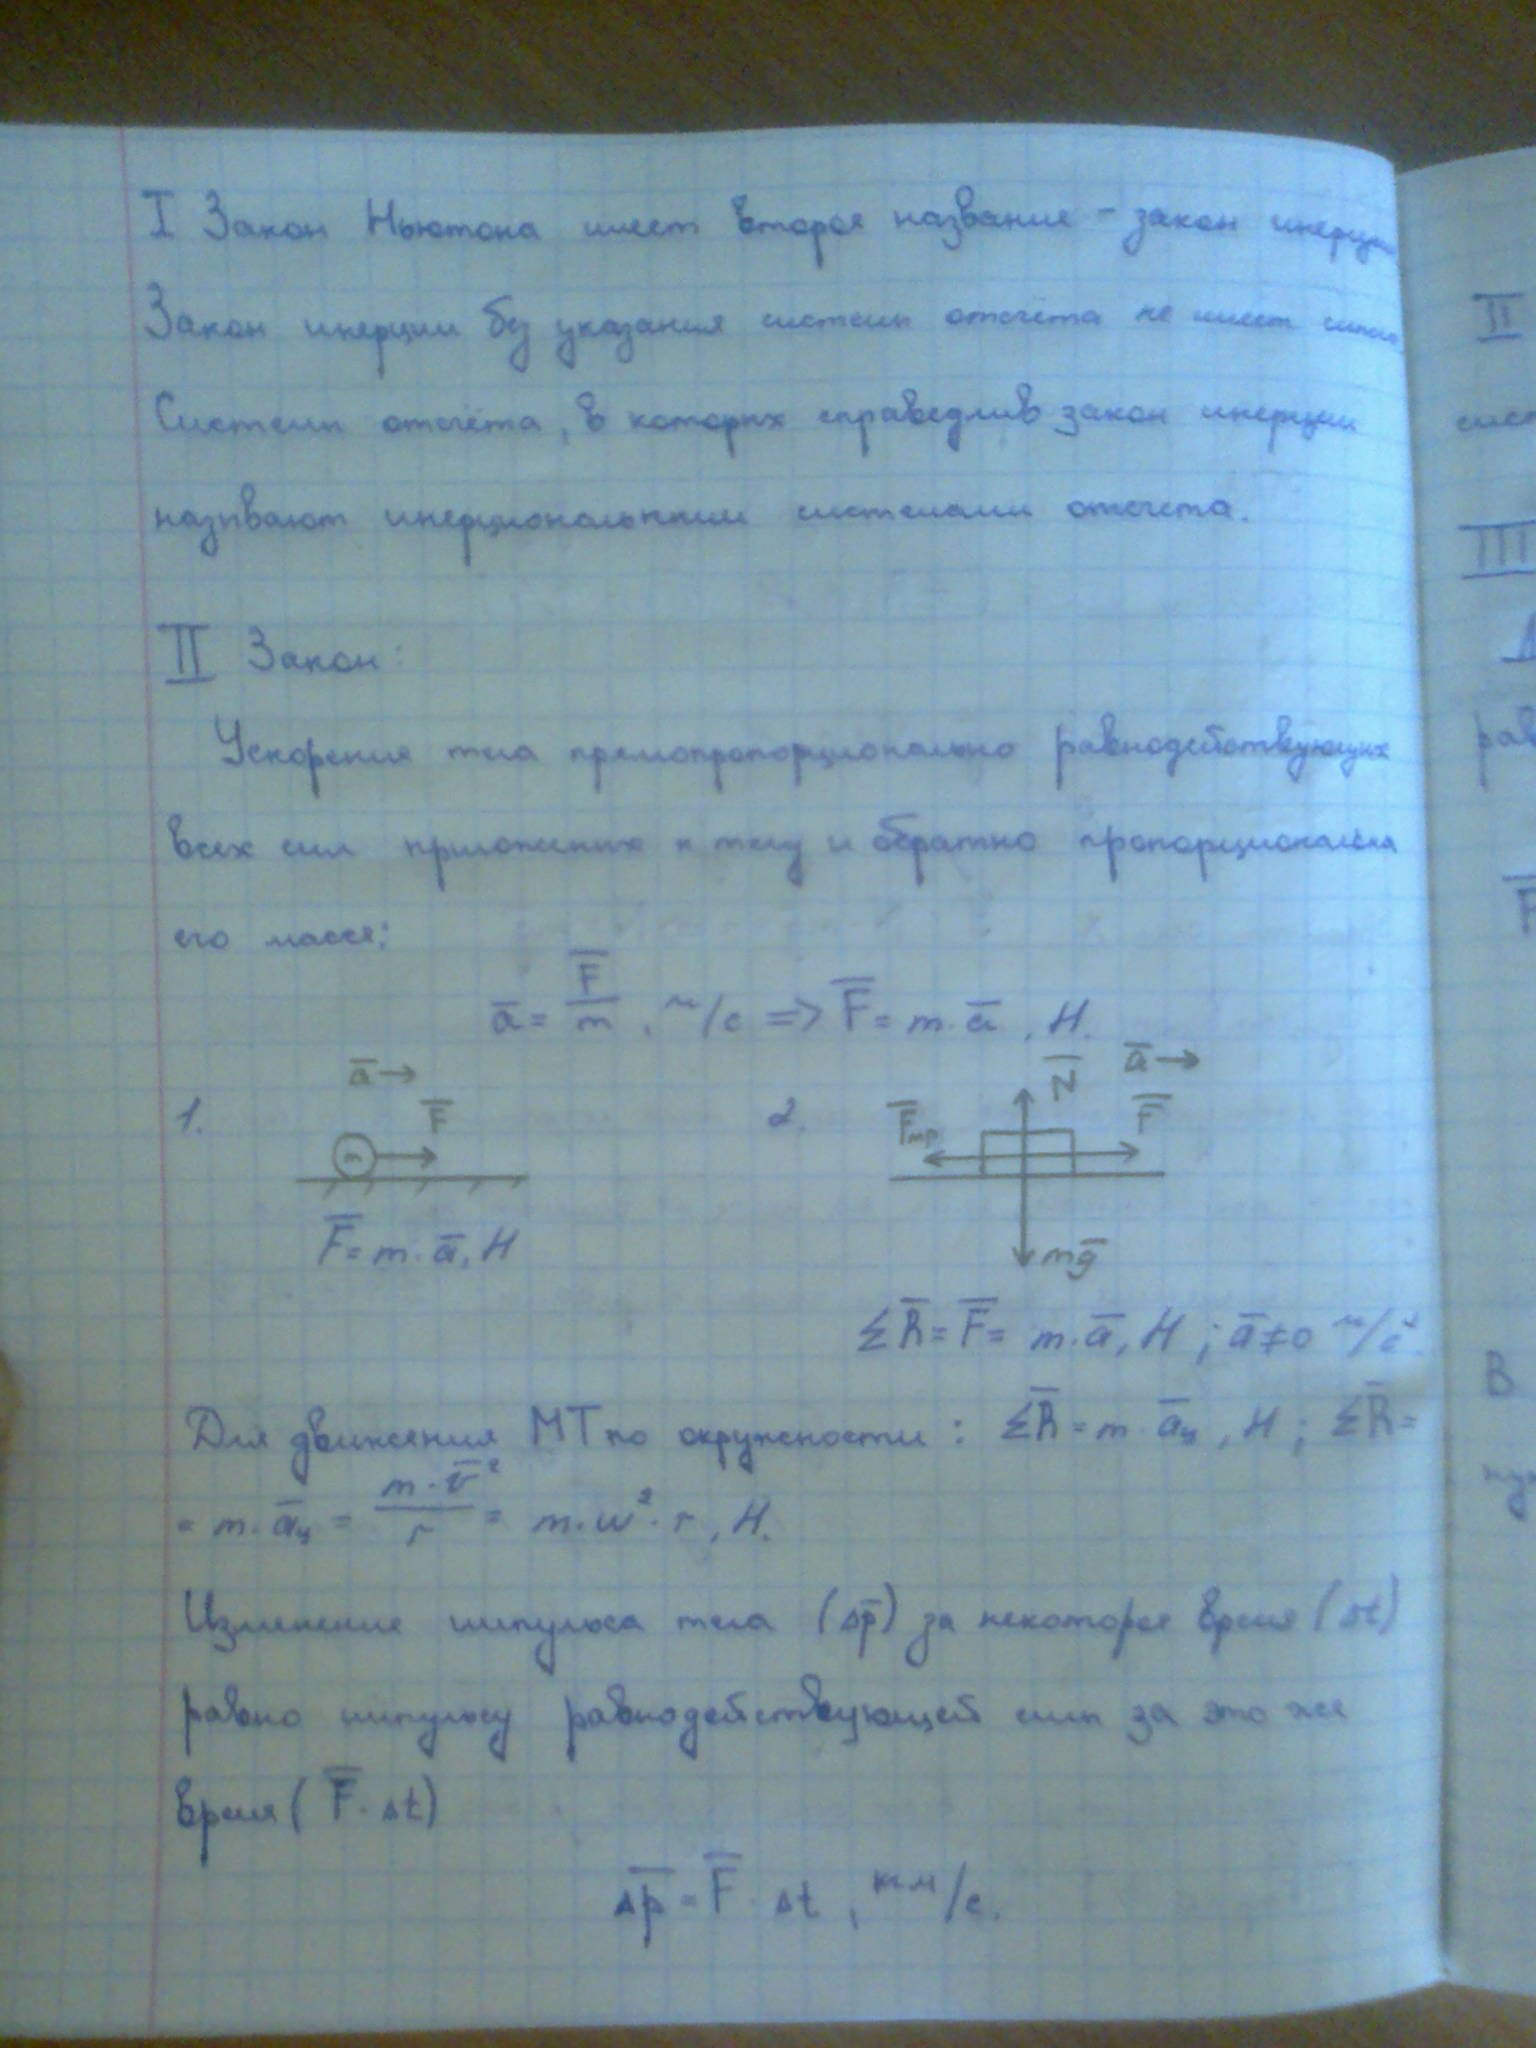 I Закон Ньютона имеет второе название - закон инерции
Закон инерции без указания системы отсчёта не имеет смысла.
Системы отсчёта, в которых справедлив закон инерции
называют инерциональными системами отсчета.
II Закон:
Ускорения тела прямопропорционально равнодействующих
всех сил приложеных к телу и обратно пропорциональна
его массе:
a̅ = F̅/m , м/с => F̅ = m·a̅ , Н.
a̅→ N̅ a̅→
1. F̅ 2. F̅тр F̅
m
F̅ = m·a̅, Н mg̅
ΣR̅ = F̅ = m·a̅, Н ; a̅≠0 м/с².
Для движения МТ по окружности : ΣR̅ = m·a̅ц , Н ; ΣR̅ =
= m·a̅ц = m·v̅²/r = m·w²·r , Н.
Изменение импульса тела (Δp̅) за некоторое время (Δt)
равно импульсу равнодействующей силы за это же
время ( F̅·Δt)
Δp̅ = F̅·Δt , кг·м/с.
II
сист
III
рав
F̅
В